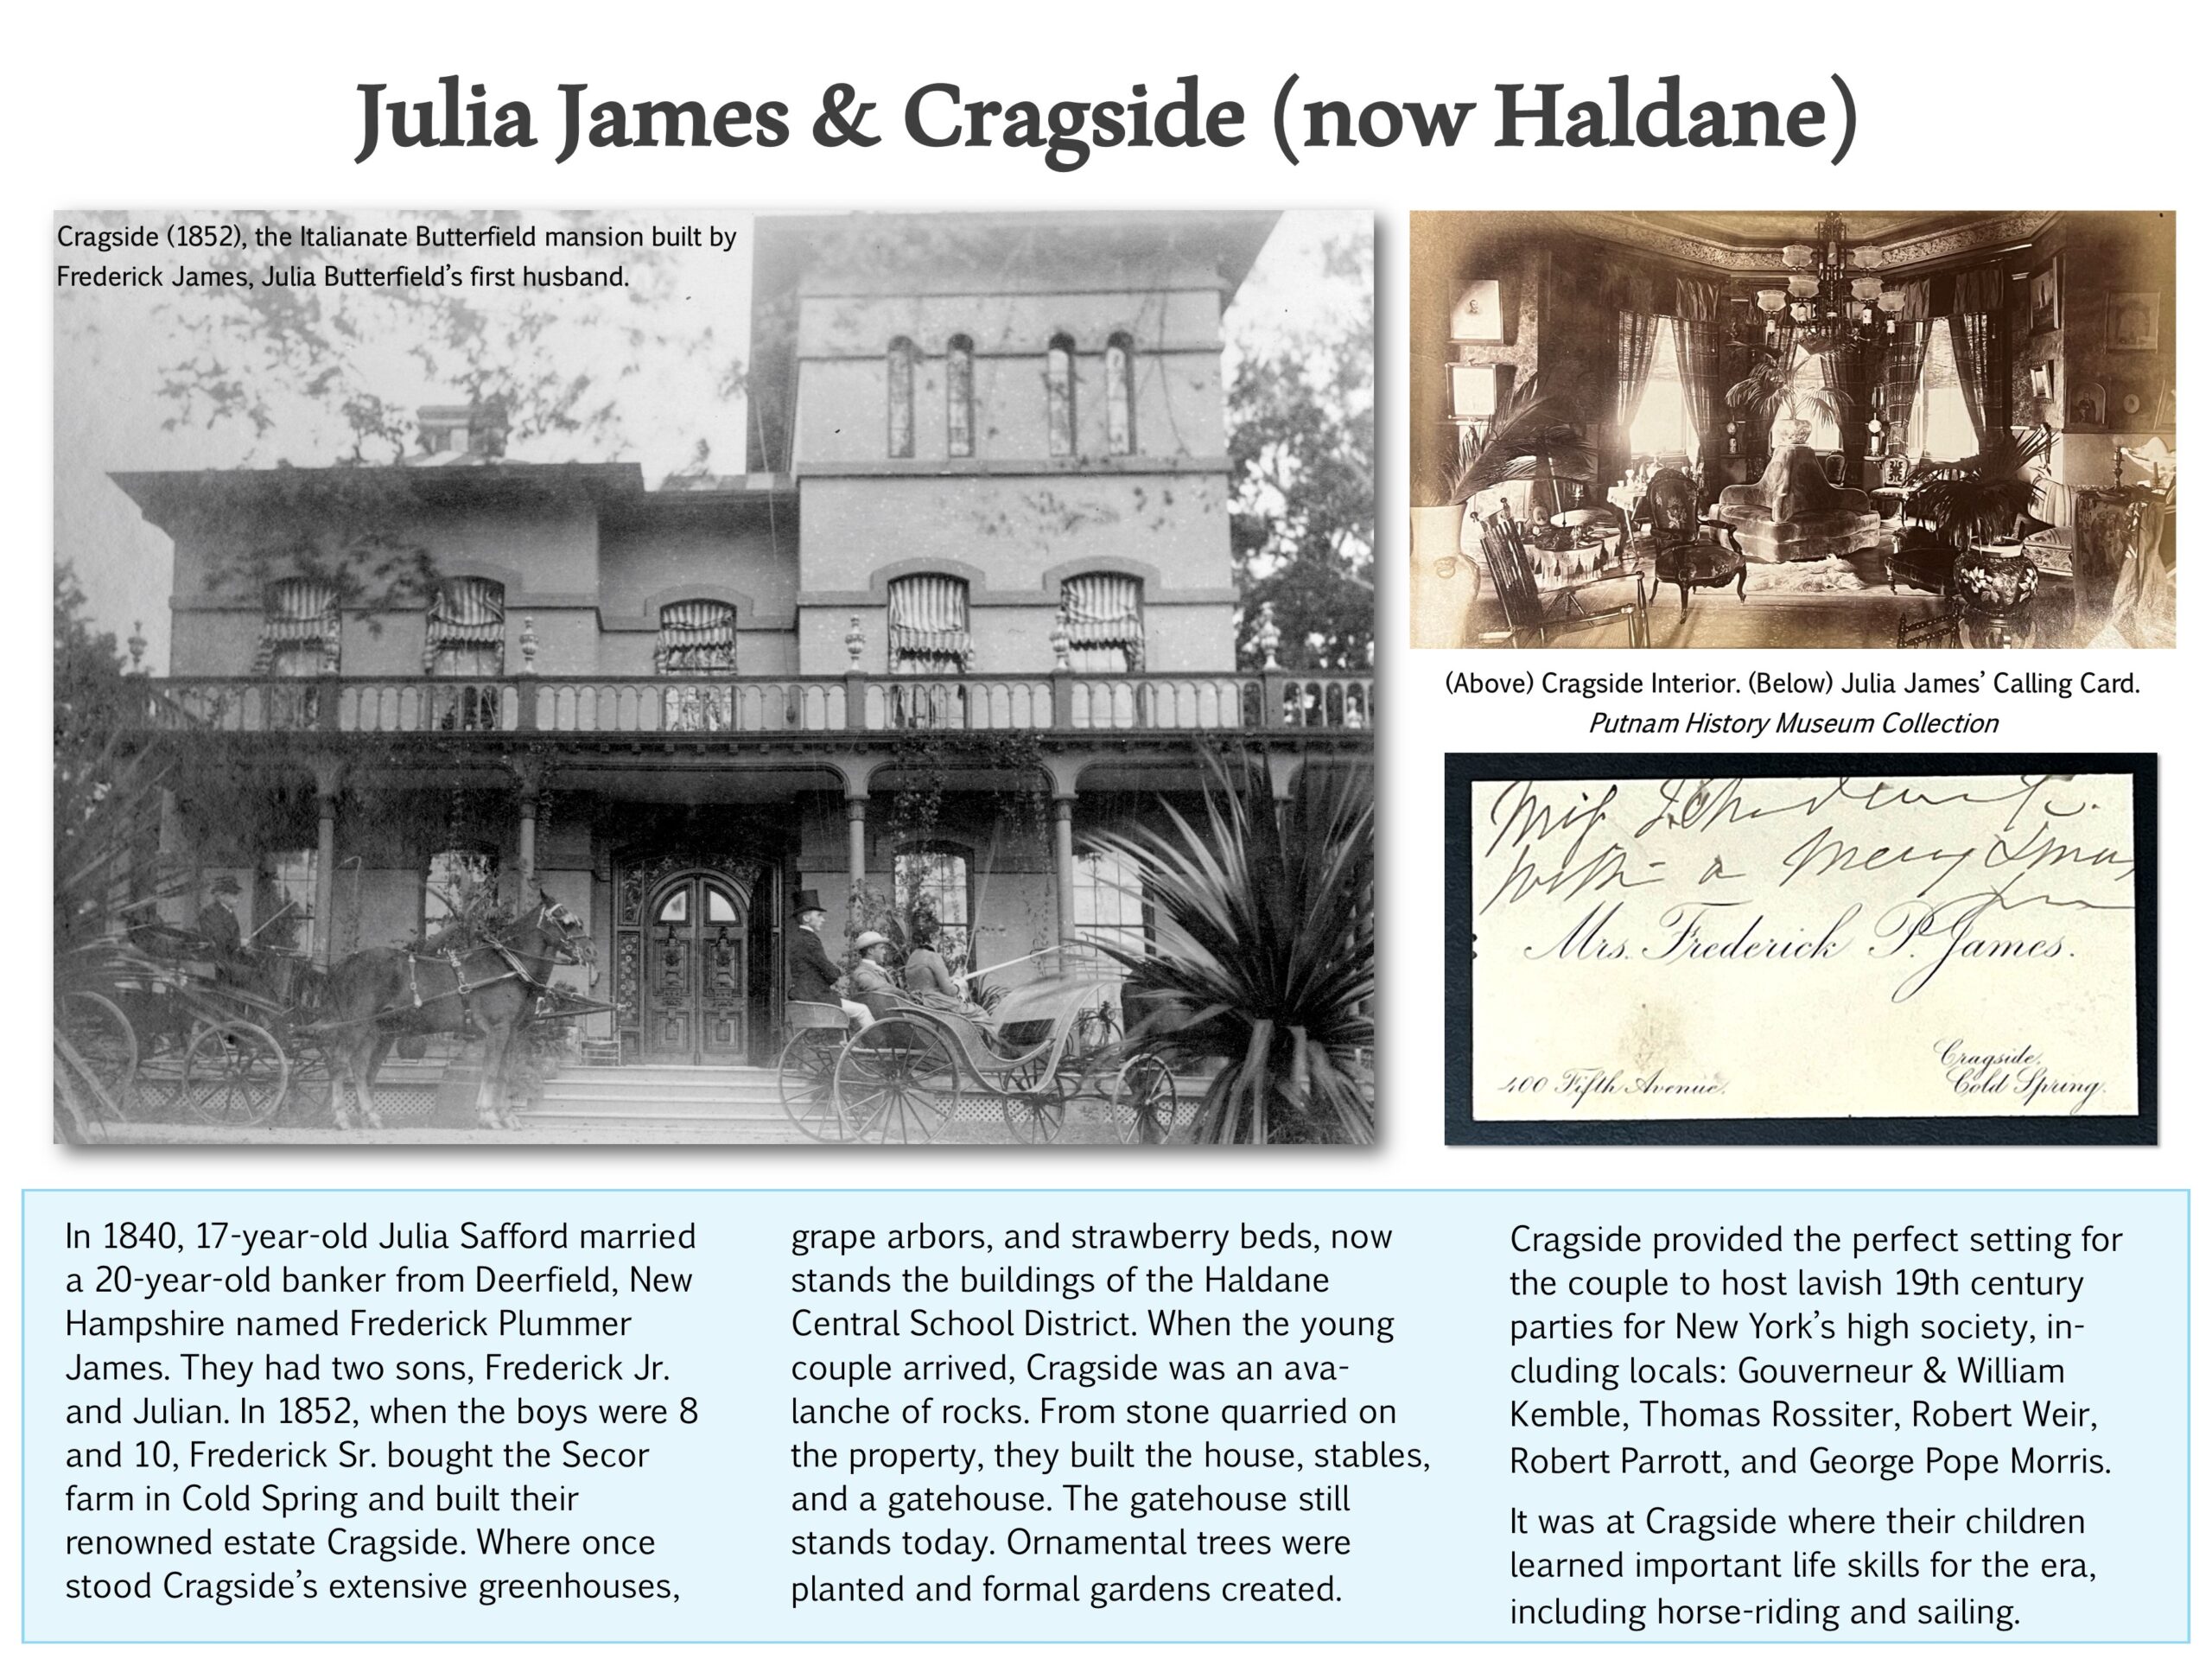 Julia James & Cragside (now Haldane)
Cragside (1852), the Italianate Butterfield mansion built by
Frederick James, Julia Butterfield's first husband.
(Above) Cragside Interior. (Below) Julia James' Calling Card.
Putnam History Museum Collection
with a Merry
Mrs. Frederick P. James.
400 Fifth Avenue.
Cragside,
Cold Spring.
In 1840, 17-year-old Julia Safford married
a 20-year-old banker from Deerfield, New
Hampshire named Frederick Plummer
James. They had two sons, Frederick Jr.
and Julian. In 1852, when the boys were 8
and 10, Frederick Sr. bought the Secor
farm in Cold Spring and built their
renowned estate Cragside. Where once
stood Cragside's extensive greenhouses,
grape arbors, and strawberry beds, now
stands the buildings of the Haldane
Central School District. When the young
couple arrived, Cragside was an ava-
lanche of rocks. From stone quarried on
the property, they built the house, stables,
and a gatehouse. The gatehouse still
stands today. Ornamental trees were
planted and formal gardens created.
Cragside provided the perfect setting for
the couple to host lavish 19th century
parties for New York's high society, in-
cluding locals: Gouverneur & William
Kemble, Thomas Rossiter, Robert Weir,
Robert Parrott, and George Pope Morris.
It was at Cragside where their children
learned important life skills for the era,
including horse-riding and sailing.